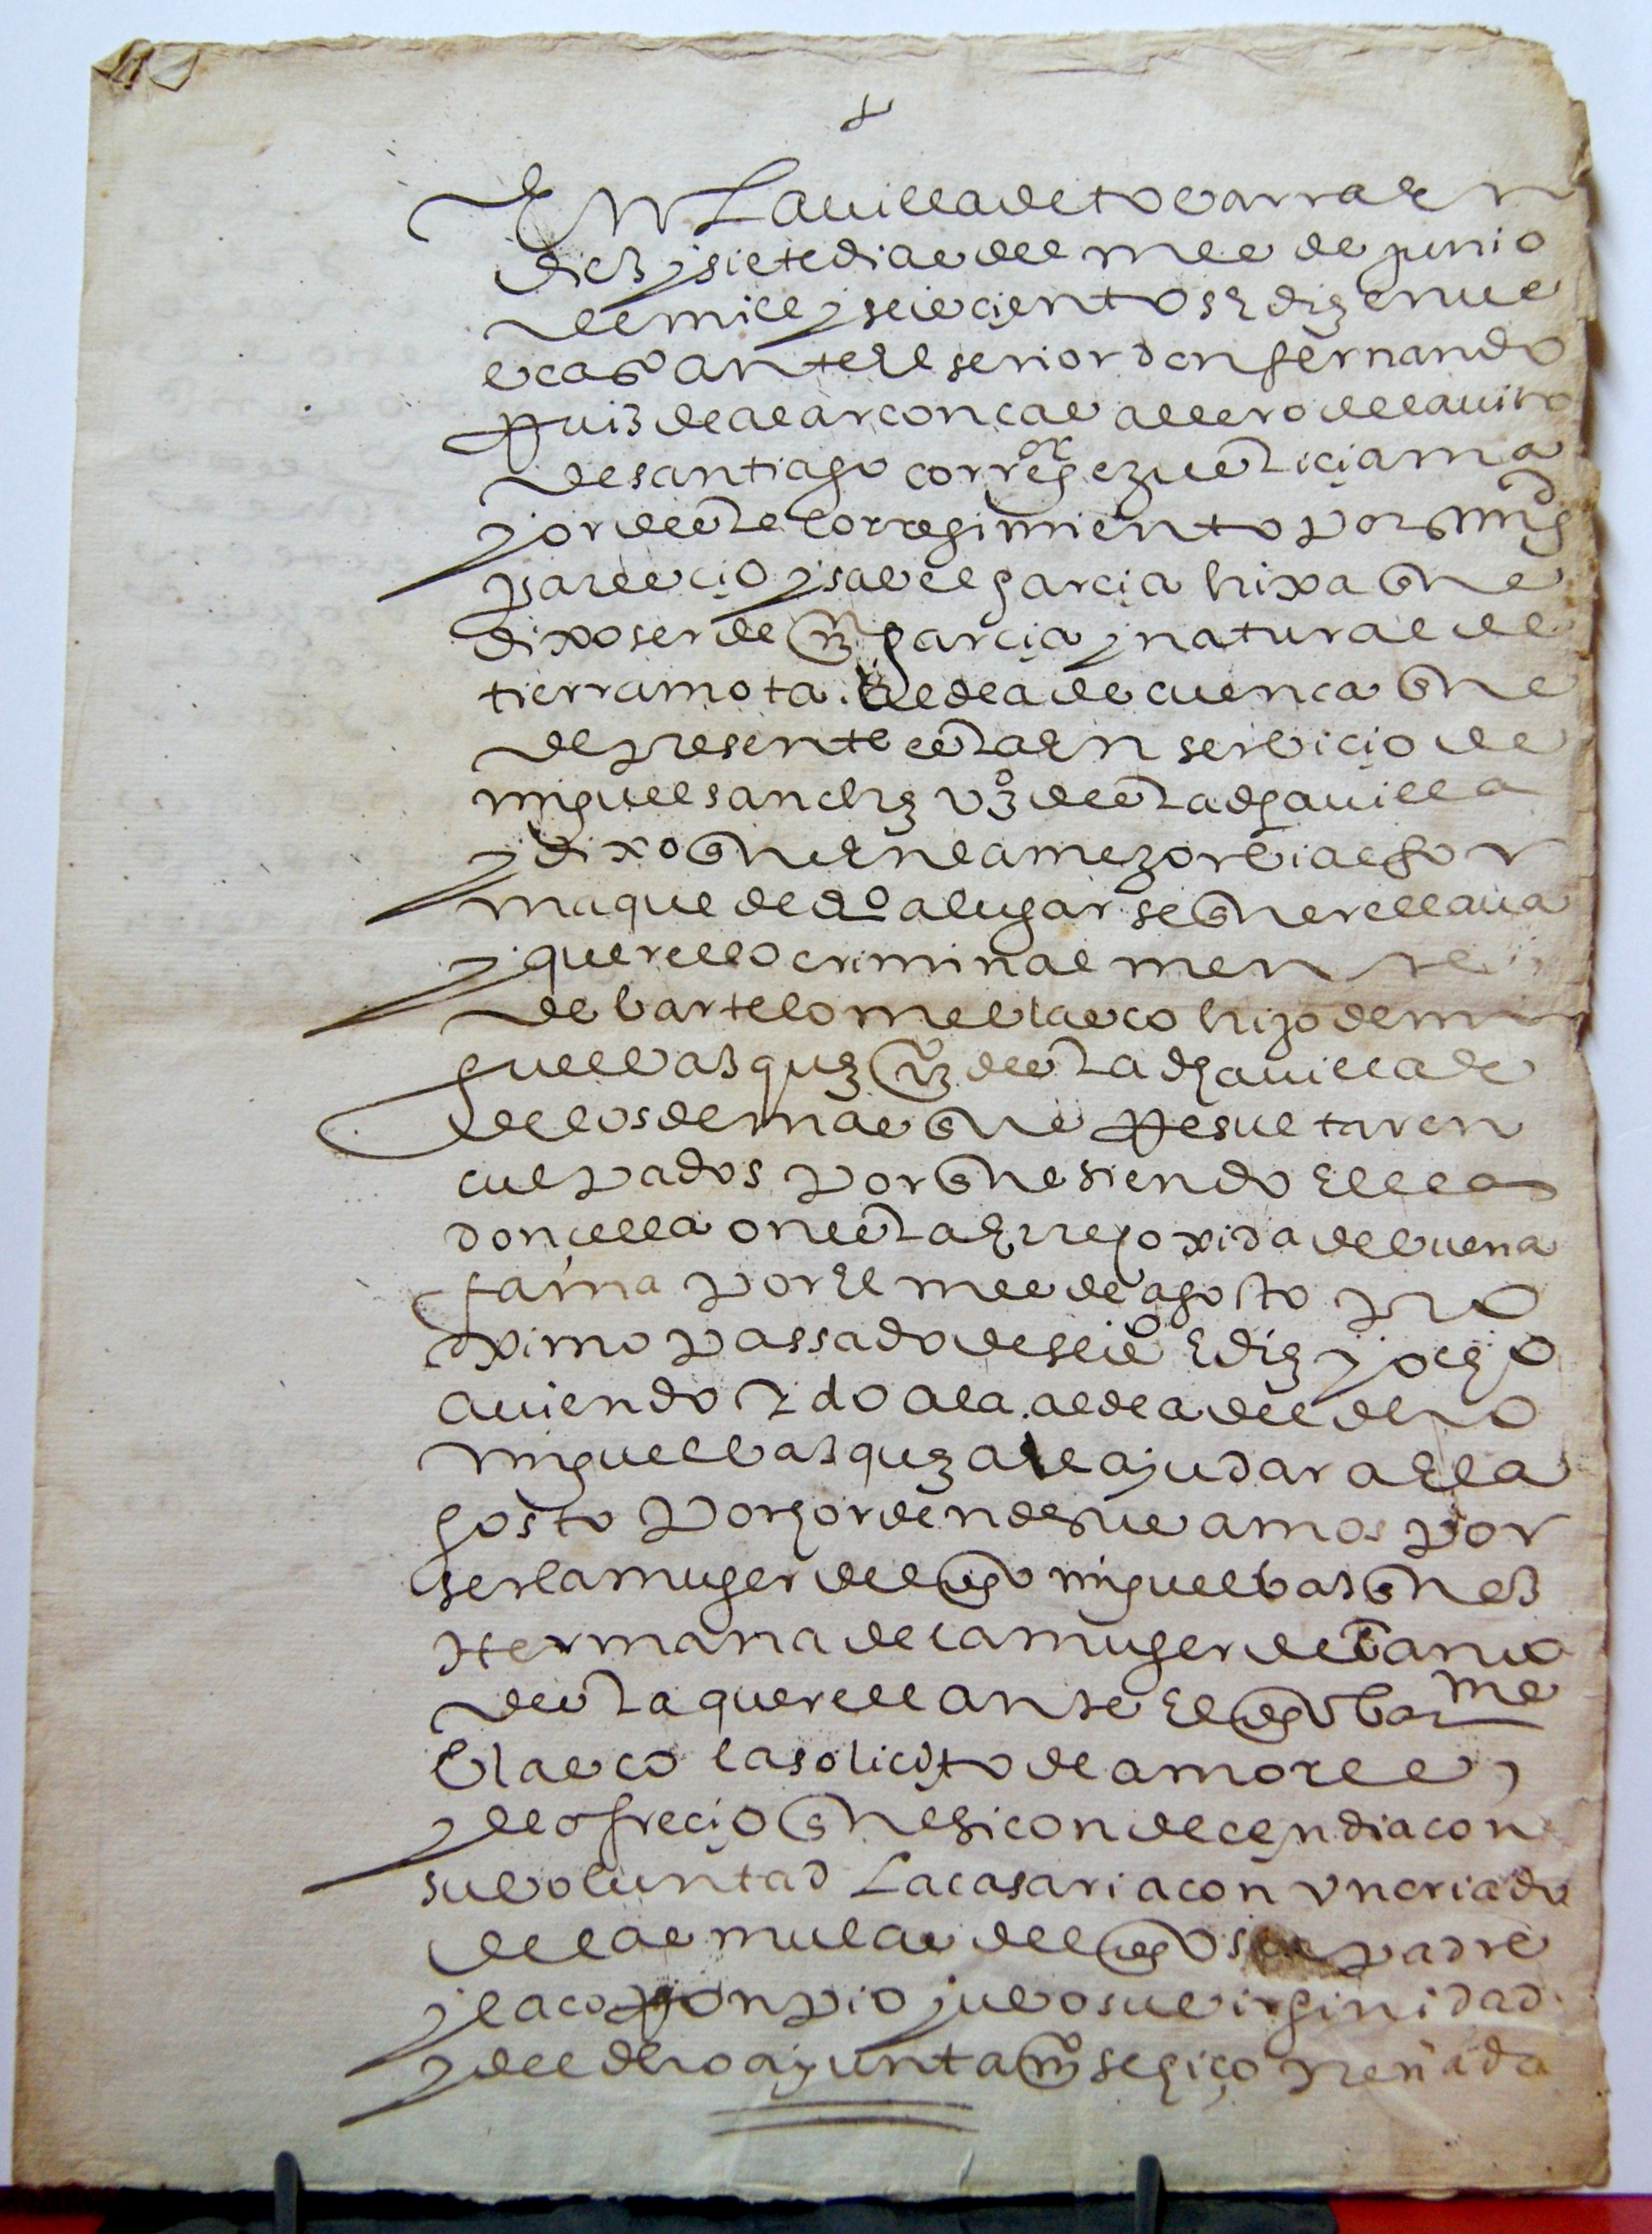 En la uilla de tobarra en
diez y siete dias del mes de junio
de mill y seiscientos e diz e nueve
años ante el señor don fernando
Ruiz de alarcon cavallero del auito
de santiago corregor e justicia ma
yor deste corregimiento por su magd
parescio ysavel garcia hixa que
dixo ser de mn garcia y natural de
tierra mota aldea de cuenca que
de presente esta en serbicio de
miguel sanchz vzo desta dha uilla
y dixo que en la mejor bia e for
ma que de dro a lugar se querellaua
y querello criminalmente
de bartolome blasco hijo de mi
guel basquz vzo desta dha uilla e
de los demas que Resultaren
culpados por que siendo ella
doncella onesta e rrecoxida de buena
fama por el mes de agosto pro
ximo passado de seisos e diz y ocho
auiendo ydo a la aldea del dho
miguel basquz a le ayudar a el a
gosto por horden de sus amos por
ser la muger del dho miguel basquez
Hermana de la muger del amo
desta querellante el dho barme
blasco la solicito de amores
y le ofrecio que si condecendia con
su boluntad la casaria con vn criado
de las mulas del dho su padre
y la coRonpio y ubo su birginidad
y del dho ayuntamo se hiço preñada